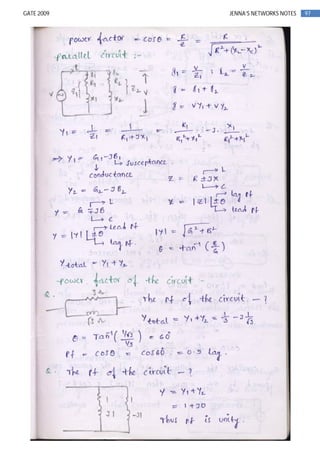 GATE 2009 JENNA'S NETWORKS NOTES 97
power factor = cosθ = R/Z = R/√(R²+(XL-XC)²)
parallel circuit :-
I1 = V/Z1 ; I2 = V/Z2
I = I1 + I2
I = VY1 + VY2
Y1 = 1/Z1 = 1/(R1+JX1) = R1/(R1²+X1²) - J · X1/(R1²+X1²)
⇒ Y1 = G1-JB1
↳ Susceptance
conductance
Y2 = G2-JB2
Z = R ± JX
Y = G ∓ JB
Z = |Z| ∠±θ lag Pf lead Pf
Y = |Y| ∠±θ lead Pf lag Pf
|Y| = √(G²+B²)
θ = tan⁻¹ (B/G)
Ytotal = Y1 + Y2
power factor of the circuit -
Q. 3Ω The Pf of the circuit - ?
√3Ω Ytotal = Y1 + Y2 = 1/3 - J 1/√3
θ = Tan⁻¹( (1/√3)/(1/3) ) = 60°
Pf = cosθ = cos60 = 0.5 lag.
Q. The Pf of the circuit - ?
1 1 Y = Y1 + Y2
J1 -J1 = 1 + J0
Thus Pf is unity.